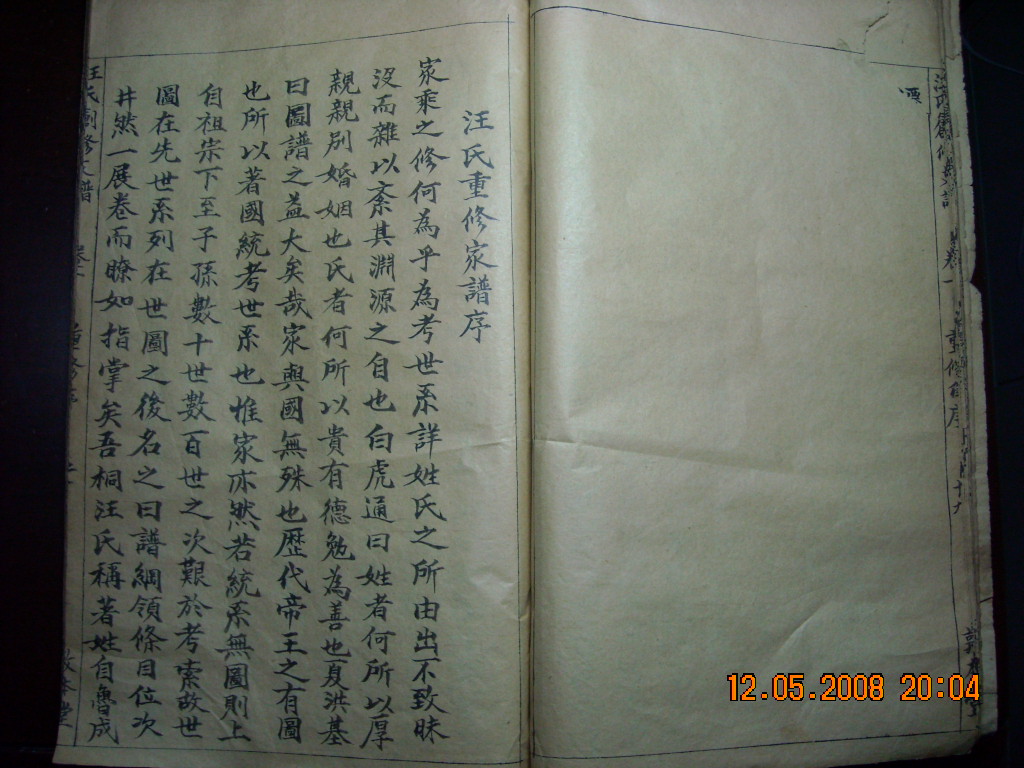 汪氏重修家譜序
家乘之修何為乎為考世系詳姓氏之所由出不致昧
没而雜以紊其淵源之自也白虎通曰姓者何所以厚
親親别婚姻也氏者何所以貴有德勉為善也夏洪基
曰圖譜之益大矣哉家與國無殊也歷代帝王之有圖
也所以著國統考世系也惟家亦然若統系無圖則上
自祖宗下至子孫數十世數百世之次艱於考索故世
圖在先世系列在世圖之後名之曰譜綱領條目位次
井然一展卷而瞭如指掌矣吾桐汪氏稱著姓自魯成
汪氏創修支譜
12.05.2008 20:04